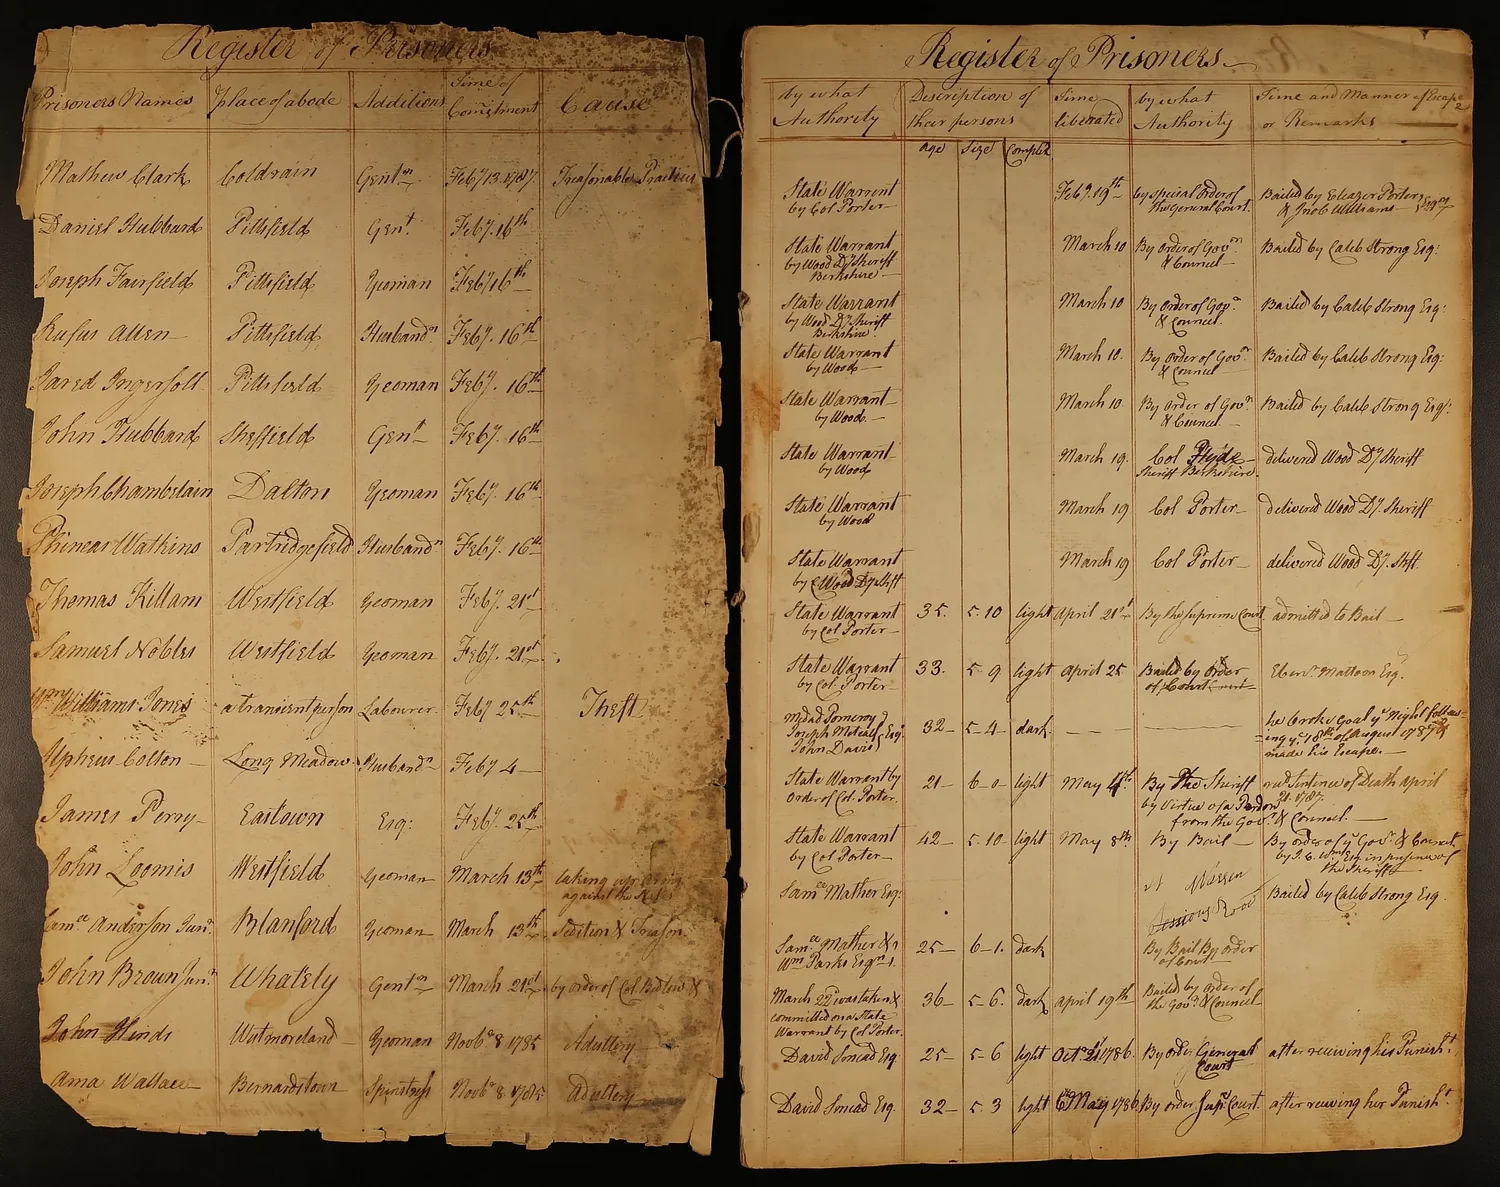 Register of Prisoners
Prisoners Names Place of abode Additions Time of Comitment Cause
Mathew Clark Coldrain Gentn Feby 13. 1787. Treasonable Practices
Daniel Hubbard Pittsfield Gent. Feby. 16th
Joseph Fairfield Pittsfield Yeoman Feby 16th
Rufus Allen Pittsfield Husbandn Feby. 16th
Jared Ingersoll Pittsfield Yeoman Feby. 16th
John Hubbard Sheffield Gent Feby. 16th
Joseph Chamberlain Dalton Yeoman Feby. 16th
Phinear Watkins Partridgefield Husbandn Feby. 16th
Thomas Killam Westfield Yeoman Feby. 21st
Samuel Nobles Westfield Yeoman Feby. 21st
Williams Jones a transient person Labourer Feby 25th Theft
Upheus Colton Long Meadow Husbandn Feby 4
James Perry Eastown Esq: Feby. 25th
John Loomis Westfield Yeoman March 13th taking up arms
against the
Samll Anderson Junr. Blanford Yeoman March 13th Sedition & Treason
John Brown Junr Whately Gentn March 21st by order of Col &
John Hinds Westmoreland Yeoman Novbr 8 1785 Adultery
Ama Wallace Bernardstown Spinstress Novbr 8. 1785 Adultery
Register of Prisoners
by what Authority Description of their persons Time liberated by what Authority Time and Manner of Escape
or Remarks
Age Size Complex
State Warrent Feby. 19th by special Order of Bailed by Eleazer Porter
by Col Porter the General Court. & Jno C Williams Esqrs
State Warrant March 10 By order of Govr Bailed by Caleb Strong Esq:
by Wood Dy Sheriff & Councel
Berkshire
State Warrant March 10 By Order of Govr Bailed by Caleb Strong Esq:
by Wood Dy Sheriff & Councel.
Berkshire.
State Warrant March 10. By order of Govr Bailed by Caleb Strong Esq:
by Wood & Councel
State Warrant March 10 By Order of Govr Bailed by Caleb Strong Esqr:
by Wood. & Councel.
State Warrant March 19. Col Hyde delivered Wood Dy Sheriff
by Wood Sheriff Berkshire.
State Warrant March 19 Col Porter delivered Wood Dy. Sheriff
by Wood
State Warrant March 19 Col Porter delivered Wood Dy. Shff.
by Wood Dy Shff
State Warrant 35. 5 10 light April 21st By the Supreme Court admitted to Bail
by Col Porter
State Warrant 33. 5 9 light April 25 Bailed by order Ebenr. Mattoon Esq.
by Col. Porter of Court
Medad Pomeroy 32 5 4 dark. he broke Goal ye Night follow-
Joseph Metcalf Esqr ing ye 18th of August 1787 &
John Davis made his Escape.
State Warrant by 21 6 0 light May 4th. By The Sheriff red Sentence of Death April
Order of Col. Porter. by Virtue of a Pardon 21. 1787.
from the Govr. & Councel.
State Warrant 42 5. 10 light May 8th By Bail By order of ye Govr & Councel
by Col Porter by J. C. Wms Esq in presence of
the Sheriff
Samll Mather Esq: Bailed by Caleb Strong Esq
Samll Mather & 25 6 1. dark By Bail By order
Wm Parks Esqrs of Court
March 22 was taken & 36 5 6. dark April 19th Bailed by order of
committed on a State the Govr & Councel
Warrant by Col Porter.
David Smead Esq 25 5 6 light Octr 21 1786. By order General after receiving his Punisht.
Court
David Smead Esq. 32 5 3 light May 1786 By order Supr Court. after receiving her Punisht.